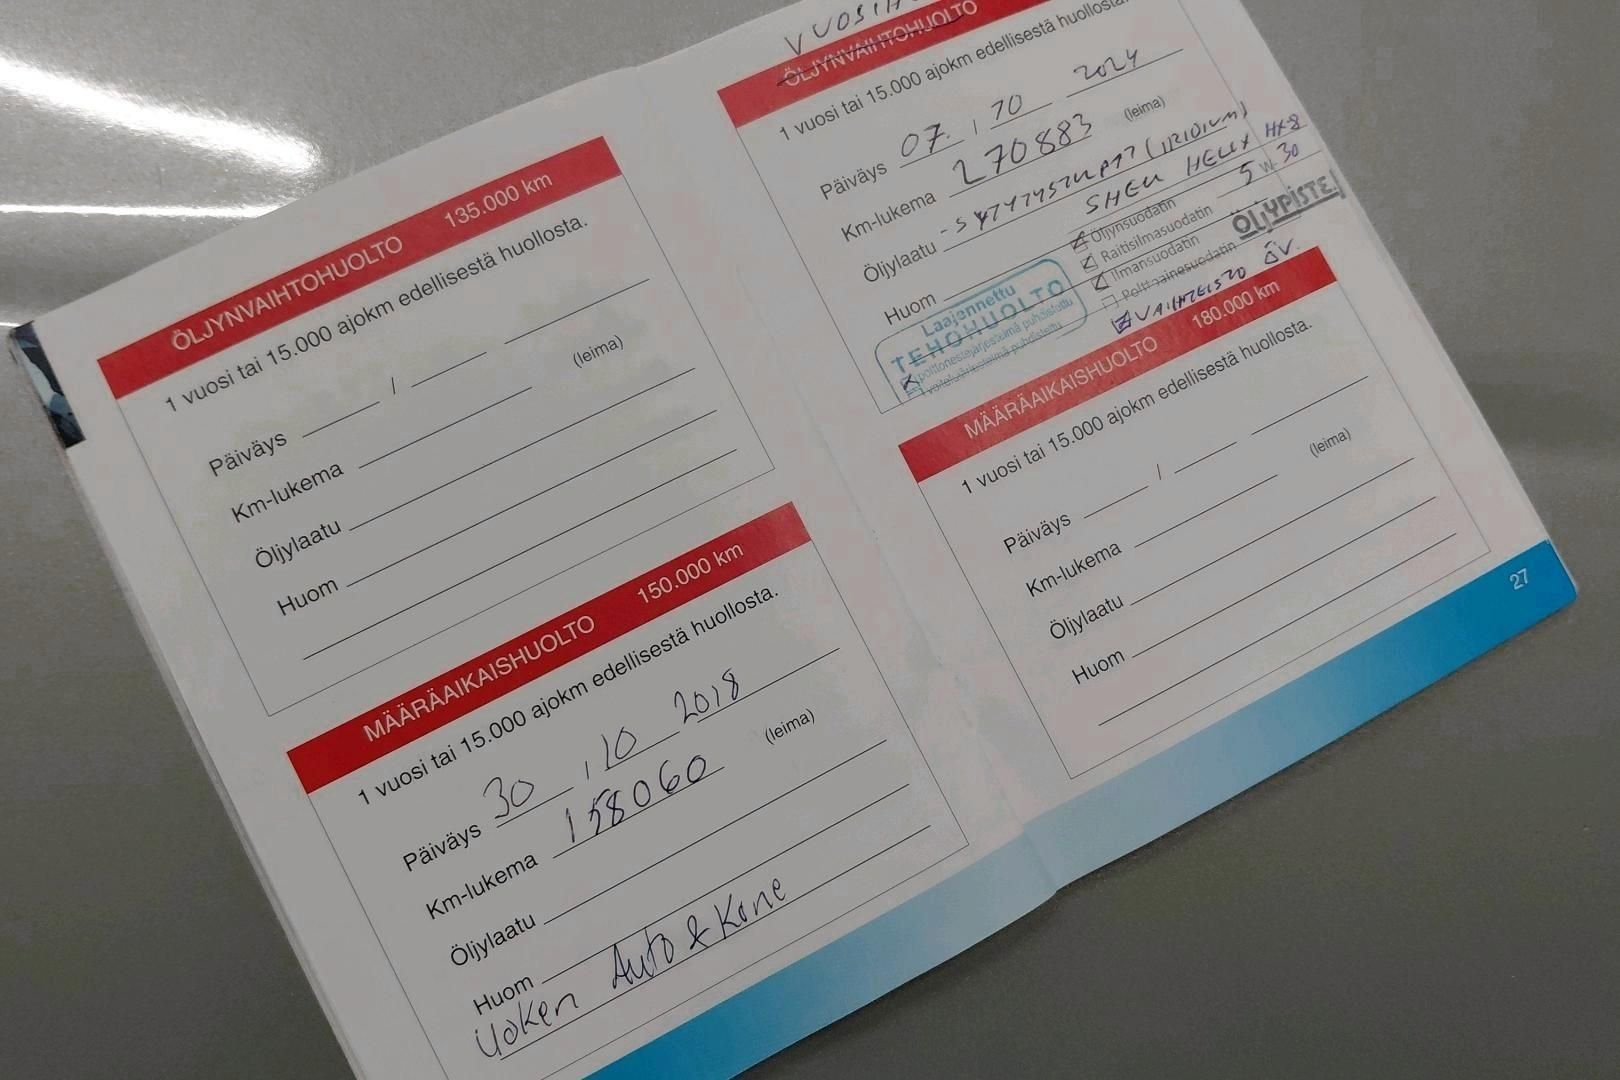 ÖLJYNVAIHTOHUOLTO 135.000 km
1 vuosi tai 15.000 ajokm edellisestä huollosta.
Päiväys /
(leima)
Km-lukema
Öljylaatu
Huom
MÄÄRÄAIKAISHUOLTO 150.000 km
1 vuosi tai 15.000 ajokm edellisestä huollosta.
Päiväys 30 / 10 2018
(leima)
Km-lukema 158060
Öljylaatu
Huom Auto & Kone
ÖLJYNVAIHTOHUOLTO
1 vuosi tai 15.000 ajokm edellisestä huollosta.
Päiväys 07. / 10 2024
(leima)
Km-lukema 270883
- SYTYTYSTULPAT (IRIDIUM)
Öljylaatu SHELL HELIX HX-8
5W 30
Huom
Öljynsuodatin
Raitisilmasuodatin
Ilmansuodatin
Polttoainesuodatin
VAIHTEISTO ÖV.
ÖLJYPISTE
Laajennettu
TEHOHUOLTO
polttonestejärjestelmä puhdistettu
voitelujärjestelmä puhdistettu
MÄÄRÄAIKAISHUOLTO 180.000 km
1 vuosi tai 15.000 ajokm edellisestä huollosta.
Päiväys /
(leima)
Km-lukema
Öljylaatu
Huom
27